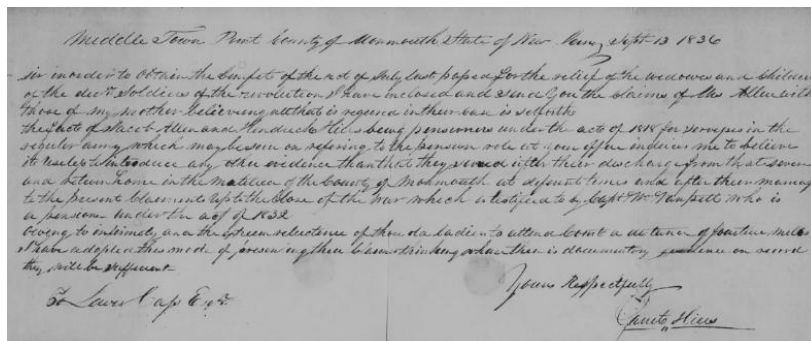 Middle Town Point County of Monmouth State of New Jersey Sept 13 1836
Sir in order to obtain the benefits of the act of July last passed for the relief of the widowes and children
of the decd Soldiers of the revolution I have inclosed and send you the claims of Mrs Allen with
those of my mother believing all that is required in their case is set forth
the fact of Jacob Allen and Hendrick Hiers being pensioners under the act of 1818 for services in the
regular army which may be seen on refering to the pension role at your office induces me to believe
it useless to introduce any other evidence than that they served after their discharge from that
and return home in the militia of the County of Monmouth at different times and after their marriage
to the present Claiments up to the close of the war which is testified to by Capt Wm who is
a pensioner under the act of 1832
owing to infirmity and the extreem reluctence of those old ladies to attend Court a distence of fourteen miles
I have adopted this mode of presenting their Claims thinking where there is documentary evidence on record
they will be sufficent
Yours Respectfully
To Lewis Cass Esqr
Hiers